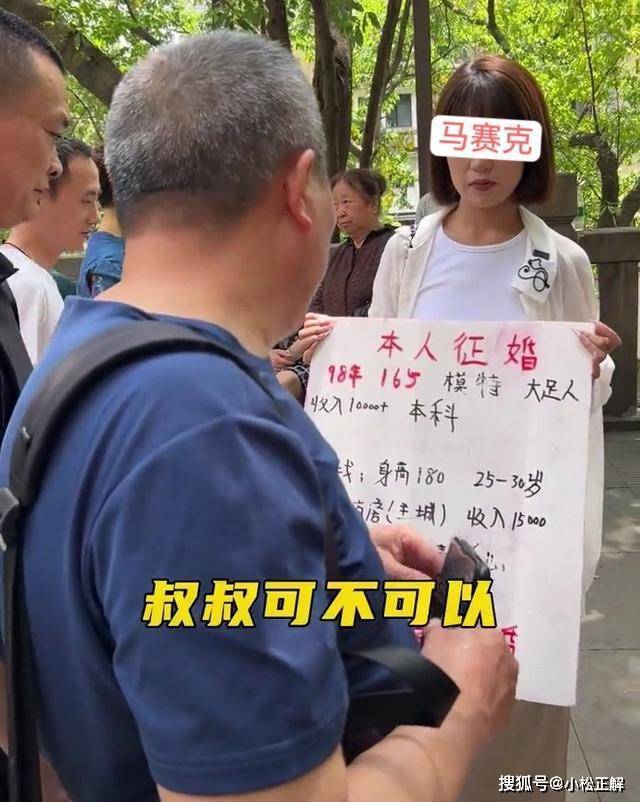 马赛克
本人征婚
98年 165 模特 大足人
收入10000+ 本科
找：身高180 25-30岁
房(主城) 收入15000
叔叔可不可以
婚
搜狐号@小松正解